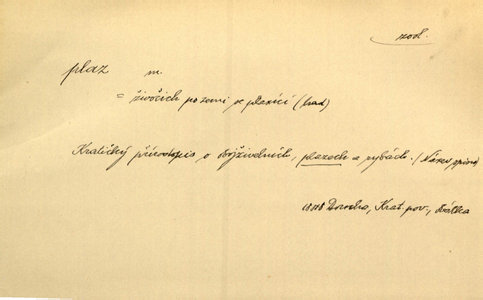 zool.
plaz m.
= živočich po zemi se plazící (had)
Kratičký přírodopis o obojživelnících, plazech a rybách. (Název, spisu)
1848 Krat. pov., Hálka